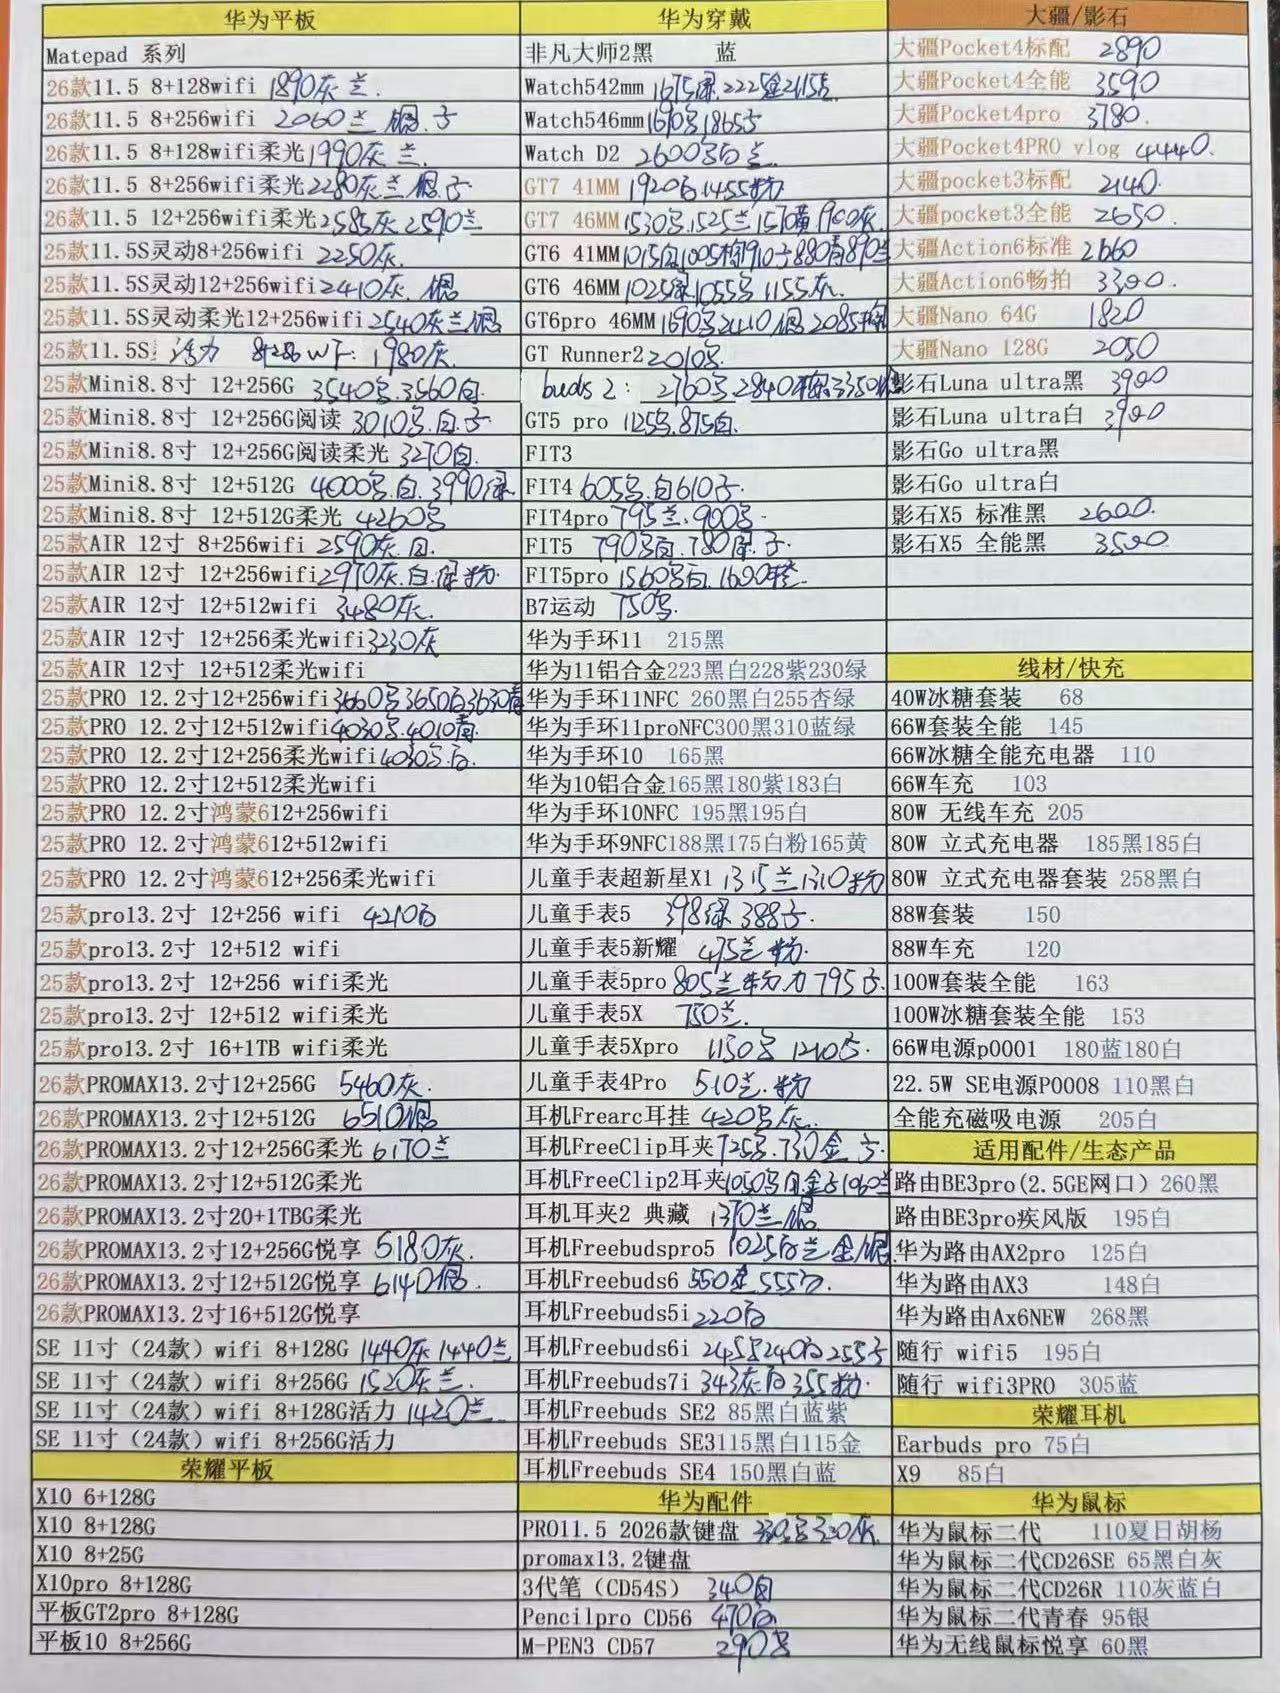 华为平板
Matepad 系列
26款11.5 8+128wifi 1890灰 兰.
26款11.5 8+256wifi 2060兰 银.子
26款11.5 8+128wifi柔光1990灰 兰.
26款11.5 8+256wifi柔光2280灰 兰.银.子
26款11.5 12+256wifi柔光2585灰 2590兰
25款11.5S灵动8+256wifi 2250灰.
25款11.5S灵动12+256wifi2410灰. 银
25款11.5S灵动柔光12+256wifi2540灰兰银
25款11.5S 活力 8+256 WF: 1980灰.
25款Mini8.8寸 12+256G 3540号.3560白.
25款Mini8.8寸 12+256G阅读 3010号.白.子
25款Mini8.8寸 12+256G阅读柔光 3270白.
25款Mini8.8寸 12+512G 4000号.白.3990绿.
25款Mini8.8寸 12+512G柔光 4260号
25款AIR 12寸 8+256wifi 2590灰.白.
25款AIR 12寸 12+256wifi2970灰.白.绿 粉.
25款AIR 12寸 12+512wifi 3480灰.
25款AIR 12寸 12+256柔光wifi3230灰
25款AIR 12寸 12+512柔光wifi
25款PRO 12.2寸12+256wifi3660号3650白3630青
25款PRO 12.2寸12+512wifi4030号.4010青
25款PRO 12.2寸12+256柔光wifi4030号.白.
25款PRO 12.2寸12+512柔光wifi
25款PRO 12.2寸鸿蒙612+256wifi
25款PRO 12.2寸鸿蒙612+512wifi
25款PRO 12.2寸鸿蒙612+256柔光wifi
25款pro13.2寸 12+256 wifi 4210白
25款pro13.2寸 12+512 wifi
25款pro13.2寸 12+256 wifi柔光
25款pro13.2寸 12+512 wifi柔光
25款pro13.2寸 16+1TB wifi柔光
26款PROMAX13.2寸12+256G 5460灰.
26款PROMAX13.2寸12+512G 6510银.
26款PROMAX13.2寸12+256G柔光 6170兰
26款PROMAX13.2寸12+512G柔光
26款PROMAX13.2寸20+1TBG柔光
26款PROMAX13.2寸12+256G悦享 5180灰.
26款PROMAX13.2寸12+512G悦享 6140银.
26款PROMAX13.2寸16+512G悦享
SE 11寸（24款）wifi 8+128G 1440灰 1440兰
SE 11寸（24款）wifi 8+256G 1520灰兰.
SE 11寸（24款）wifi 8+128G活力 1420兰.
SE 11寸（24款）wifi 8+256G活力
荣耀平板
X10 6+128G
X10 8+128G
X10 8+25G
X10pro 8+128G
平板GT2pro 8+128G
平板10 8+256G
华为穿戴
非凡大师2黑 蓝
Watch542mm 1675绿.2225金2115
Watch546mm1690号1865子
Watch D2 2600号白兰
GT7 41MM 1920白.1455粉
GT7 46MM1530号.1525兰1570黄1900灰
GT6 41MM1015白1005棕910子880青890兰
GT6 46MM 1025绿1055号 1155灰.
GT6pro 46MM1690号2410银2085棕
GT Runner22010号
buds 2: 2760号2840棕3350
GT5 pro 1125号.875白.
FIT3
FIT4 605号.白610子.
FIT4pro 795兰.900号.
FIT5 790号白.780绿.子.
FIT5pro 1560号白.1600
B7运动 750号.
华为手环11 215黑
华为11铝合金223黑白228紫230绿
华为手环11NFC 260黑白255杏绿
华为手环11proNFC300黑310蓝绿
华为手环10 165黑
华为10铝合金165黑180紫183白
华为手环10NFC 195黑195白
华为手环9NFC188黑175白粉165黄
儿童手表超新星X1 1315兰1310粉
儿童手表5 398绿 388子.
儿童手表5新耀 475兰 粉.
儿童手表5pro 805兰 粉 795子.
儿童手表5X 750兰.
儿童手表5Xpro 1150号 1210子.
儿童手表4Pro 510兰.粉
耳机Frearc耳挂 420号灰.
耳机FreeClip耳夹725号.730金 子.
耳机FreeClip2耳夹1050号白金 1060兰
耳机耳夹2 典藏 1370兰 银
耳机Freebudspro5 1025白兰金银.
耳机Freebuds6 550金555白.
耳机Freebuds5i 220白
耳机Freebuds6i 245号240白255子
耳机Freebuds7i 343灰白355粉.
耳机Freebuds SE2 85黑白蓝紫
耳机Freebuds SE3115黑白115金
耳机Freebuds SE4 150黑白蓝
华为配件
PRO11.5 2026款键盘 330号320灰.
promax13.2键盘
3代笔（CD54S） 340白
Pencilpro CD56 470白
M-PEN3 CD57 290号
大疆/影石
大疆Pocket4标配 2890
大疆Pocket4全能 3590
大疆Pocket4pro 3780.
大疆Pocket4PRO vlog 4440.
大疆pocket3标配 2140.
大疆pocket3全能 2650.
大疆Action6标准 2660
大疆Action6畅拍 3300.
大疆Nano 64G 1820
大疆Nano 128G 2050
影石Luna ultra黑 3900
影石Luna ultra白 3900
影石Go ultra黑
影石Go ultra白
影石X5 标准黑 2600.
影石X5 全能黑 3500.
线材/快充
40W冰糖套装 68
66W套装全能 145
66W冰糖全能充电器 110
66W车充 103
80W 无线车充 205
80W 立式充电器 185黑185白
80W 立式充电器套装 258黑白
88W套装 150
88W车充 120
100W套装全能 163
100W冰糖套装全能 153
66W电源p0001 180蓝180白
22.5W SE电源P0008 110黑白
全能充磁吸电源 205白
适用配件/生态产品
路由BE3pro(2.5GE网口）260黑
路由BE3pro疾风版 195白
华为路由AX2pro 125白
华为路由AX3 148白
华为路由Ax6NEW 268黑
随行 wifi5 195白
随行 wifi3PRO 305蓝
荣耀耳机
Earbuds pro 75白
X9 85白
华为鼠标
华为鼠标二代 110夏日胡杨
华为鼠标二代CD26SE 65黑白灰
华为鼠标二代CD26R 110灰蓝白
华为鼠标二代青春 95银
华为无线鼠标悦享 60黑